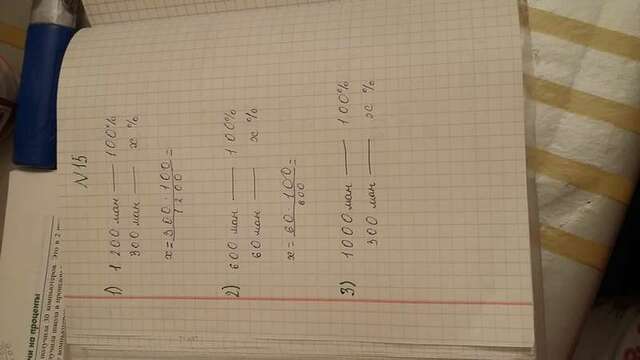 чи на проценты
получила 30 компьютеров. Это в 2
лучила школа в прошлом
компьютер
N15
1) 1 200 ман — 100%
300 ман — x %
x = 300 · 100 =
1200
2) 600 ман — 100%
60 ман — x %
x = 60 · 100 =
600
3) 1000 ман — 100%
300 ман — x %